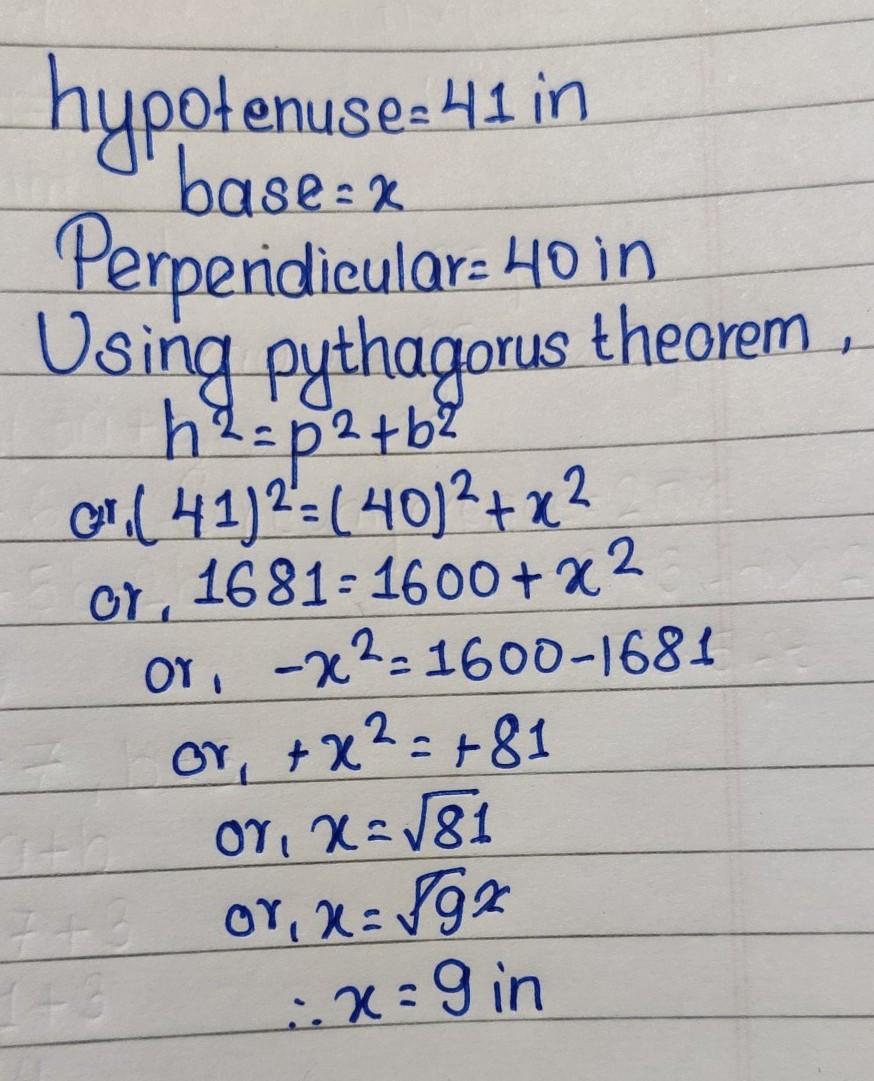 hypotenuse=41 in
base=x
Perpendicular=40 in
Using pythagorus theorem,
h²=p²+b²
or,(41)²=(40)²+x²
or, 1681=1600+x²
or, -x²=1600-1681
or, +x²=+81
or, x=√81
or, x=√9²
∴ x=9 in